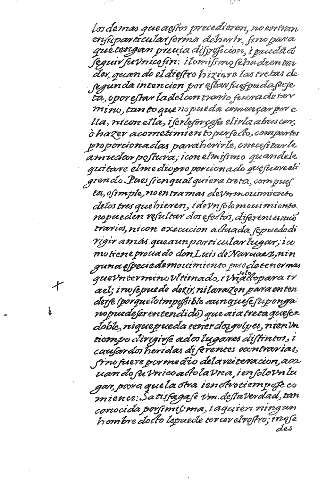 los demas que a estos precedieren, no entran
en su particular forma de herir, sino para
que tengan previa disposicion, i pueda co
seguir su unico fin: i lo mismo se ha de enten
der, quando el diestro hiziere las tretas de
segunda intencion por estar su espada suje
ta, o por estar la del contrario fuera de ter
mino, tanto que no pueda començar por e
lla, ni con ella, i se le forçosse el irla a buscar,
ò hazer acometimiento perfecto, con partes
proporcionadas para herirle, o necesitarle
a mudar postura; i con el mismo quando le
quitare el medio proporcionado que tuviere eli
giendo. Pues si en qualquiera treta, compues
ta, o simple, no entra mas de un movimiento
de los tres que hieren, i de un solo movimiento
no pueden resultar dos efectos, diferentes ni co
trarios, ni con execucion actuada se puede di
rigir a mas que a un particular lugar, i co
mo tiene provado don Luis de Narvaez, nin
guna especie de movimiento puede tener mas
que un termino ultimado, i un solo para ir a
el; i no se puede dezir, ni la razon para enten
derse (porque lo imposible aunque se suponga
no puede ser entendido) que aia treta que sea
doble, ni que pueda tener dos golpes, ni en un
tiempo dirigirse a dos lugares distintos, i
causar dos heridas diferentes o contrarias,
sino fuere por medio de la reiteracion, aca
uando se unico acto la una, i en solo un lu
gar, para que la otra i en otro tiempo se co
miençe: Satisfagase v.m. desta verdad, tan
conocida por si misma, i a quien ningun
hombre docto le puede torcer el rostro; i no se
des